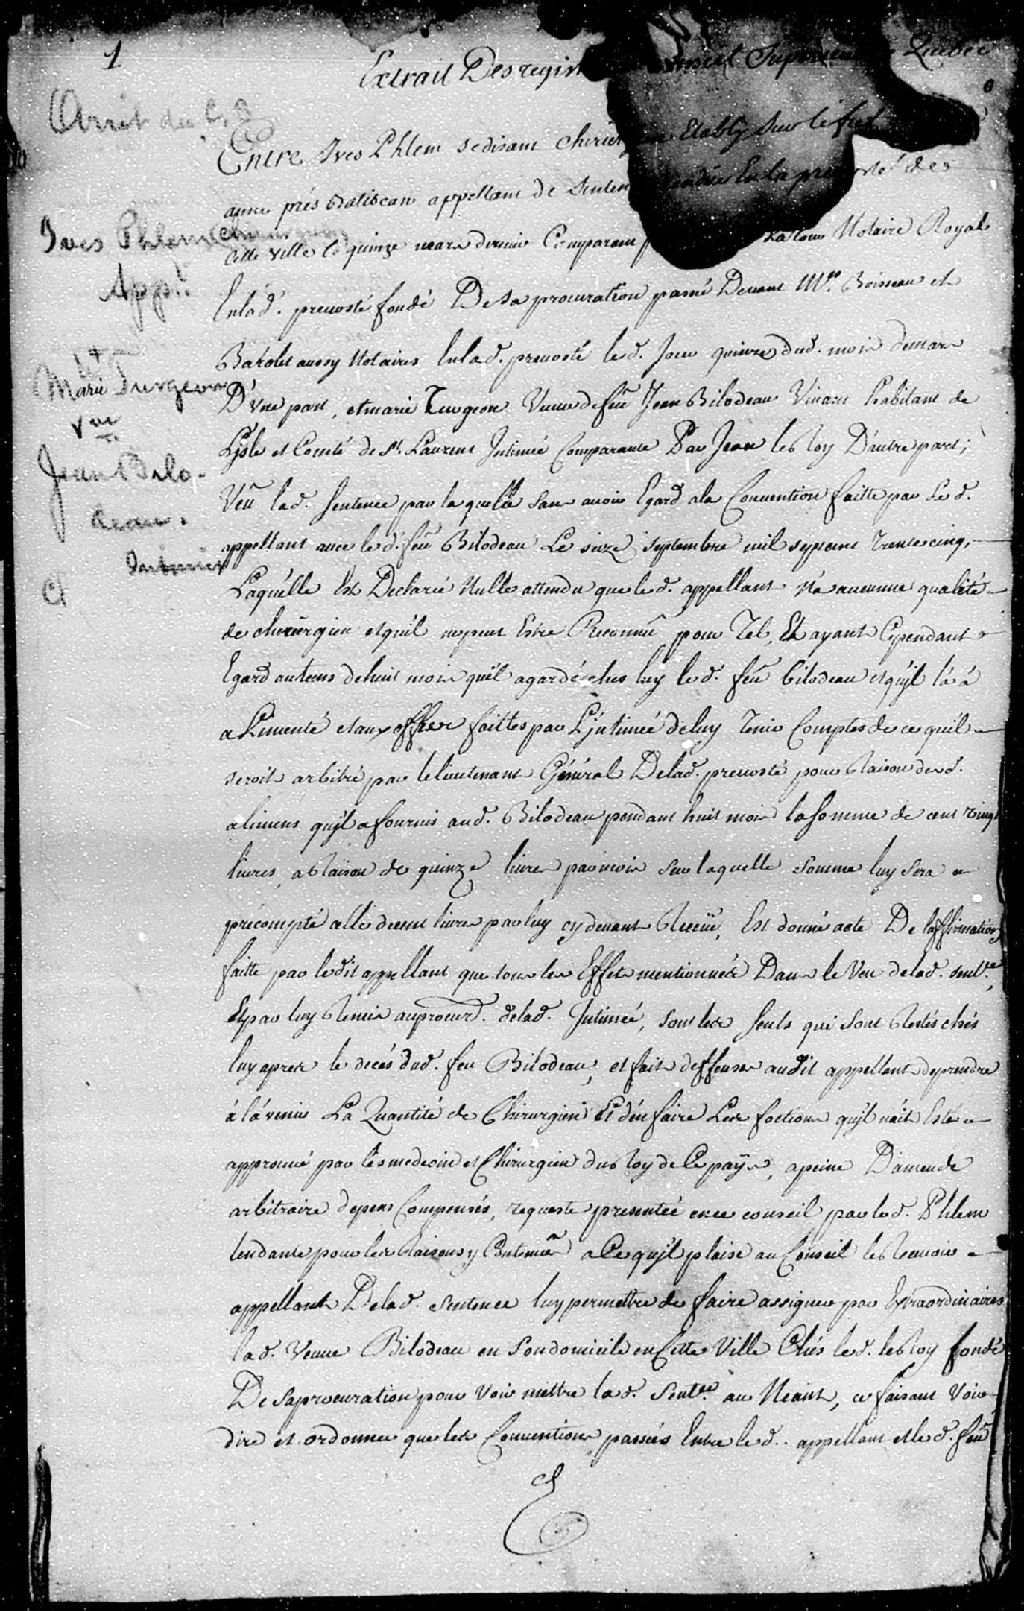 1
Extrait Des regis Conseil Superieur de Quebec
Arrit du C. S
Entre Yves Phlem se disant chirurgien Etably sur le fief
anne prés Batiscan appellant de Senten rendüe En la prevosté de
Cette ville le quinze mars dernier Comparant p Latour Notaire Royal
En lad. prevosté fondé De sa procuration passé Devant Mre. Boisseau et
Barolet aussy Notaires En lad. prevosté le d. Jour quinze dud. mois de mars
D'une part, et marie Turgeon Veuve de feu Jean Bilodeau Vivant habitant de
L'isle et Comté de St. Laurent Intimée Comparante Par Jean le Roy D'autre part;
Veu lad. Sentence par laquelle sans avoir Egard a la Convention faitte par Le d.
appellant avec le d. feu Bilodeau Le onze septembre mil sept cens Trente cinq,
Laquelle Est Declarée Nulle attendu que le d. appellant n'a aucune qualité
de chirurgien et qu'il ne peut Estre Reconnu pour Tel, Et ayant Cependant
Egard au tems de huit mois qu'il a gardé chés luy le d. feu bilodeau et qu'il l'a
alimenté et aux offres faittes par L'jntimée de luy Tenir Comptes de ce quil
seroit arbitré par le lieutenant Général De lad. prevosté pour Raison des d.
alimens qu'jl a fournis aud. Bilodeau pendant huit mois la somme de cent vingt
livres a Raison de quinze livres par mois sur laquelle somme luy sera
précompté celle de cent livres par luy cy devant Receüe, Est donné acte De l'affirmation
faitte par ledit appellant que tous les Effets mentionnés Dans le Veu de lad. sentce.
Et par luy Remis au procurr. de lad. Intimée, sont les seuls qui sont Restés chés
luy aprés le decés dud. feu Bilodeau, et fait deffenses audit appellant de prendre
à l'avenir La Quantité de Chirurgien Et d'en faire Les fonctions qu'jl n'ait Esté
approuvé par les medecins et Chirurgien du Roy de Ce païs, a peine D'amende
arbitraire depens Compensés, requeste presentée en ce conseil par le d. Phlem
tendante pour les Raisons y Contenües a Ce qu'jl plaise au Conseil le Recevoir
appellant De lad. Sentence luy permettre de faire assigner par Extraordinaires
la d. Veuve Bilodeau en son domicile en Cette Ville Chés le d. le Roy fondé
De sa procuration pour Voir mettre la d. Sentce. au Neant, ce faisant Voir
dire et ordonner que les Conventions passées Entre le d. appellant et le d. feu
Yves Phlem
chirurgien
App.t
Marie Turgeon
Vve
Jean Bilo-
deau.
Intimée